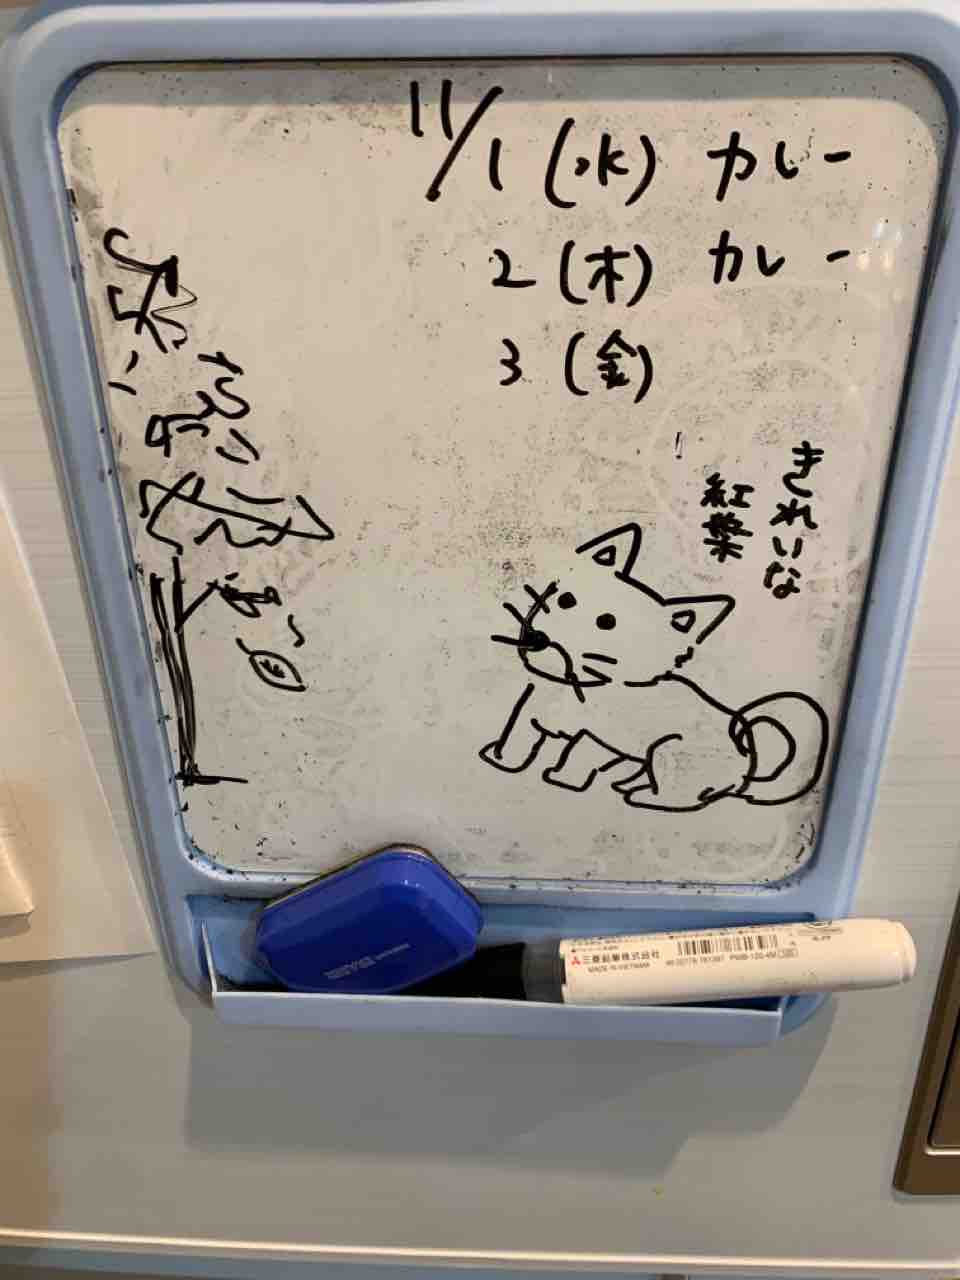 11/1(水) カレー
2(木) カレー
3(金)
きれいな
紅葉
三菱鉛筆株式会社
MADE IN VIETNAM